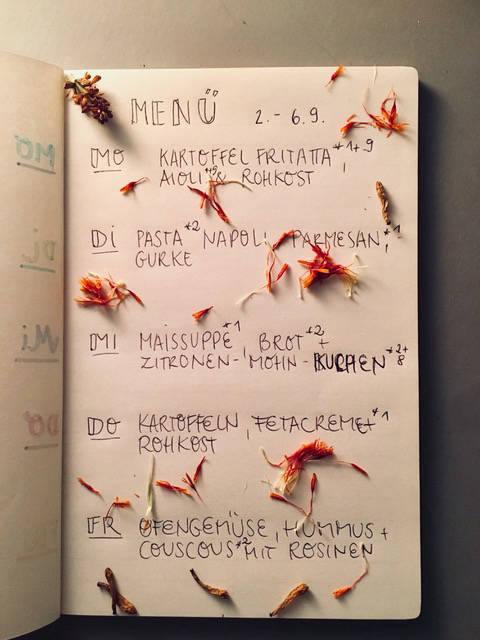 MENÜ 2.-6.9.
MO KARTOFFEL FRITATTA*1+9,
AIOLI*9 & ROHKOST
DI PASTA*2 NAPOLI, PARMESAN*1,
GURKE
MI MAISSUPPE*1, BROT*2 +
ZITRONEN-MOHN-KUCHEN*2+8
DO KARTOFFELN, FETACREME*1+
ROHKOST
FR OFENGEMÜSE, HUMMUS +
COUSCOUS*2 MIT ROSINEN
MO
Di
Mi
DO
FR